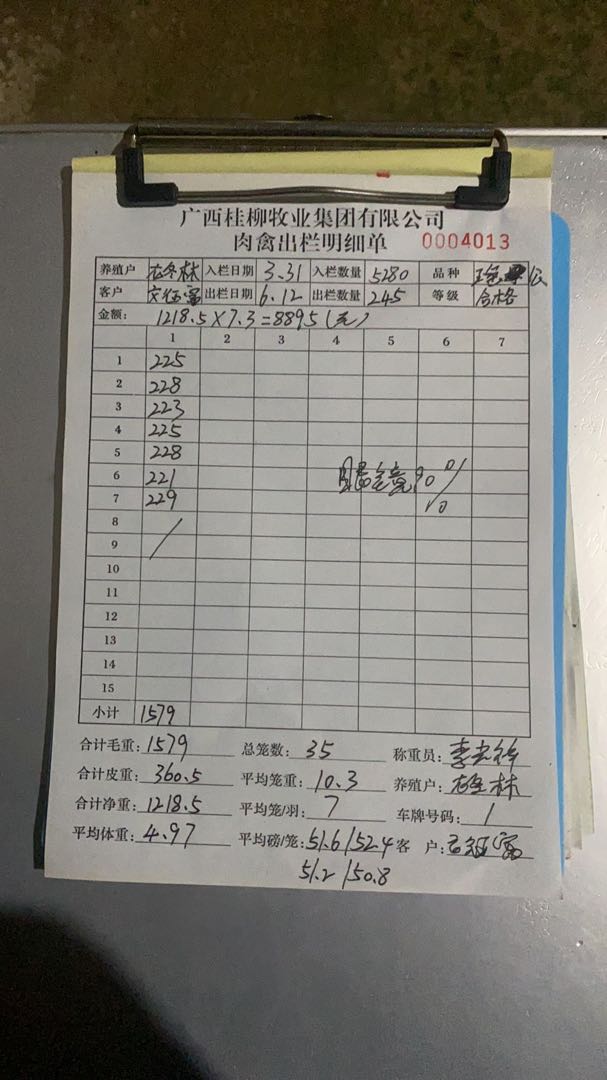 广西桂柳牧业集团有限公司
肉禽出栏明细单 0004013
养殖户 林 入栏日期 3.31 入栏数量 5280 品种
客户 出栏日期 6.12 出栏数量 245 等级 合格
金额: 1218.5×7.3=8895(元)
1 2 3 4 5 6 7
1 225
2 228
3 223
4 225
5 228
6 221 90%
7 229
8
9
10
11
12
13
14
15
小计 1579
合计毛重: 1579 总笼数: 35 称重员: 李
合计皮重: 360.5 平均笼重: 10.3 养殖户: 林
合计净重: 1218.5 平均笼/羽: 7 车牌号码: 1
平均体重: 4.97 平均磅/笼: 51.6/52.4 客 户:
51.2/50.8